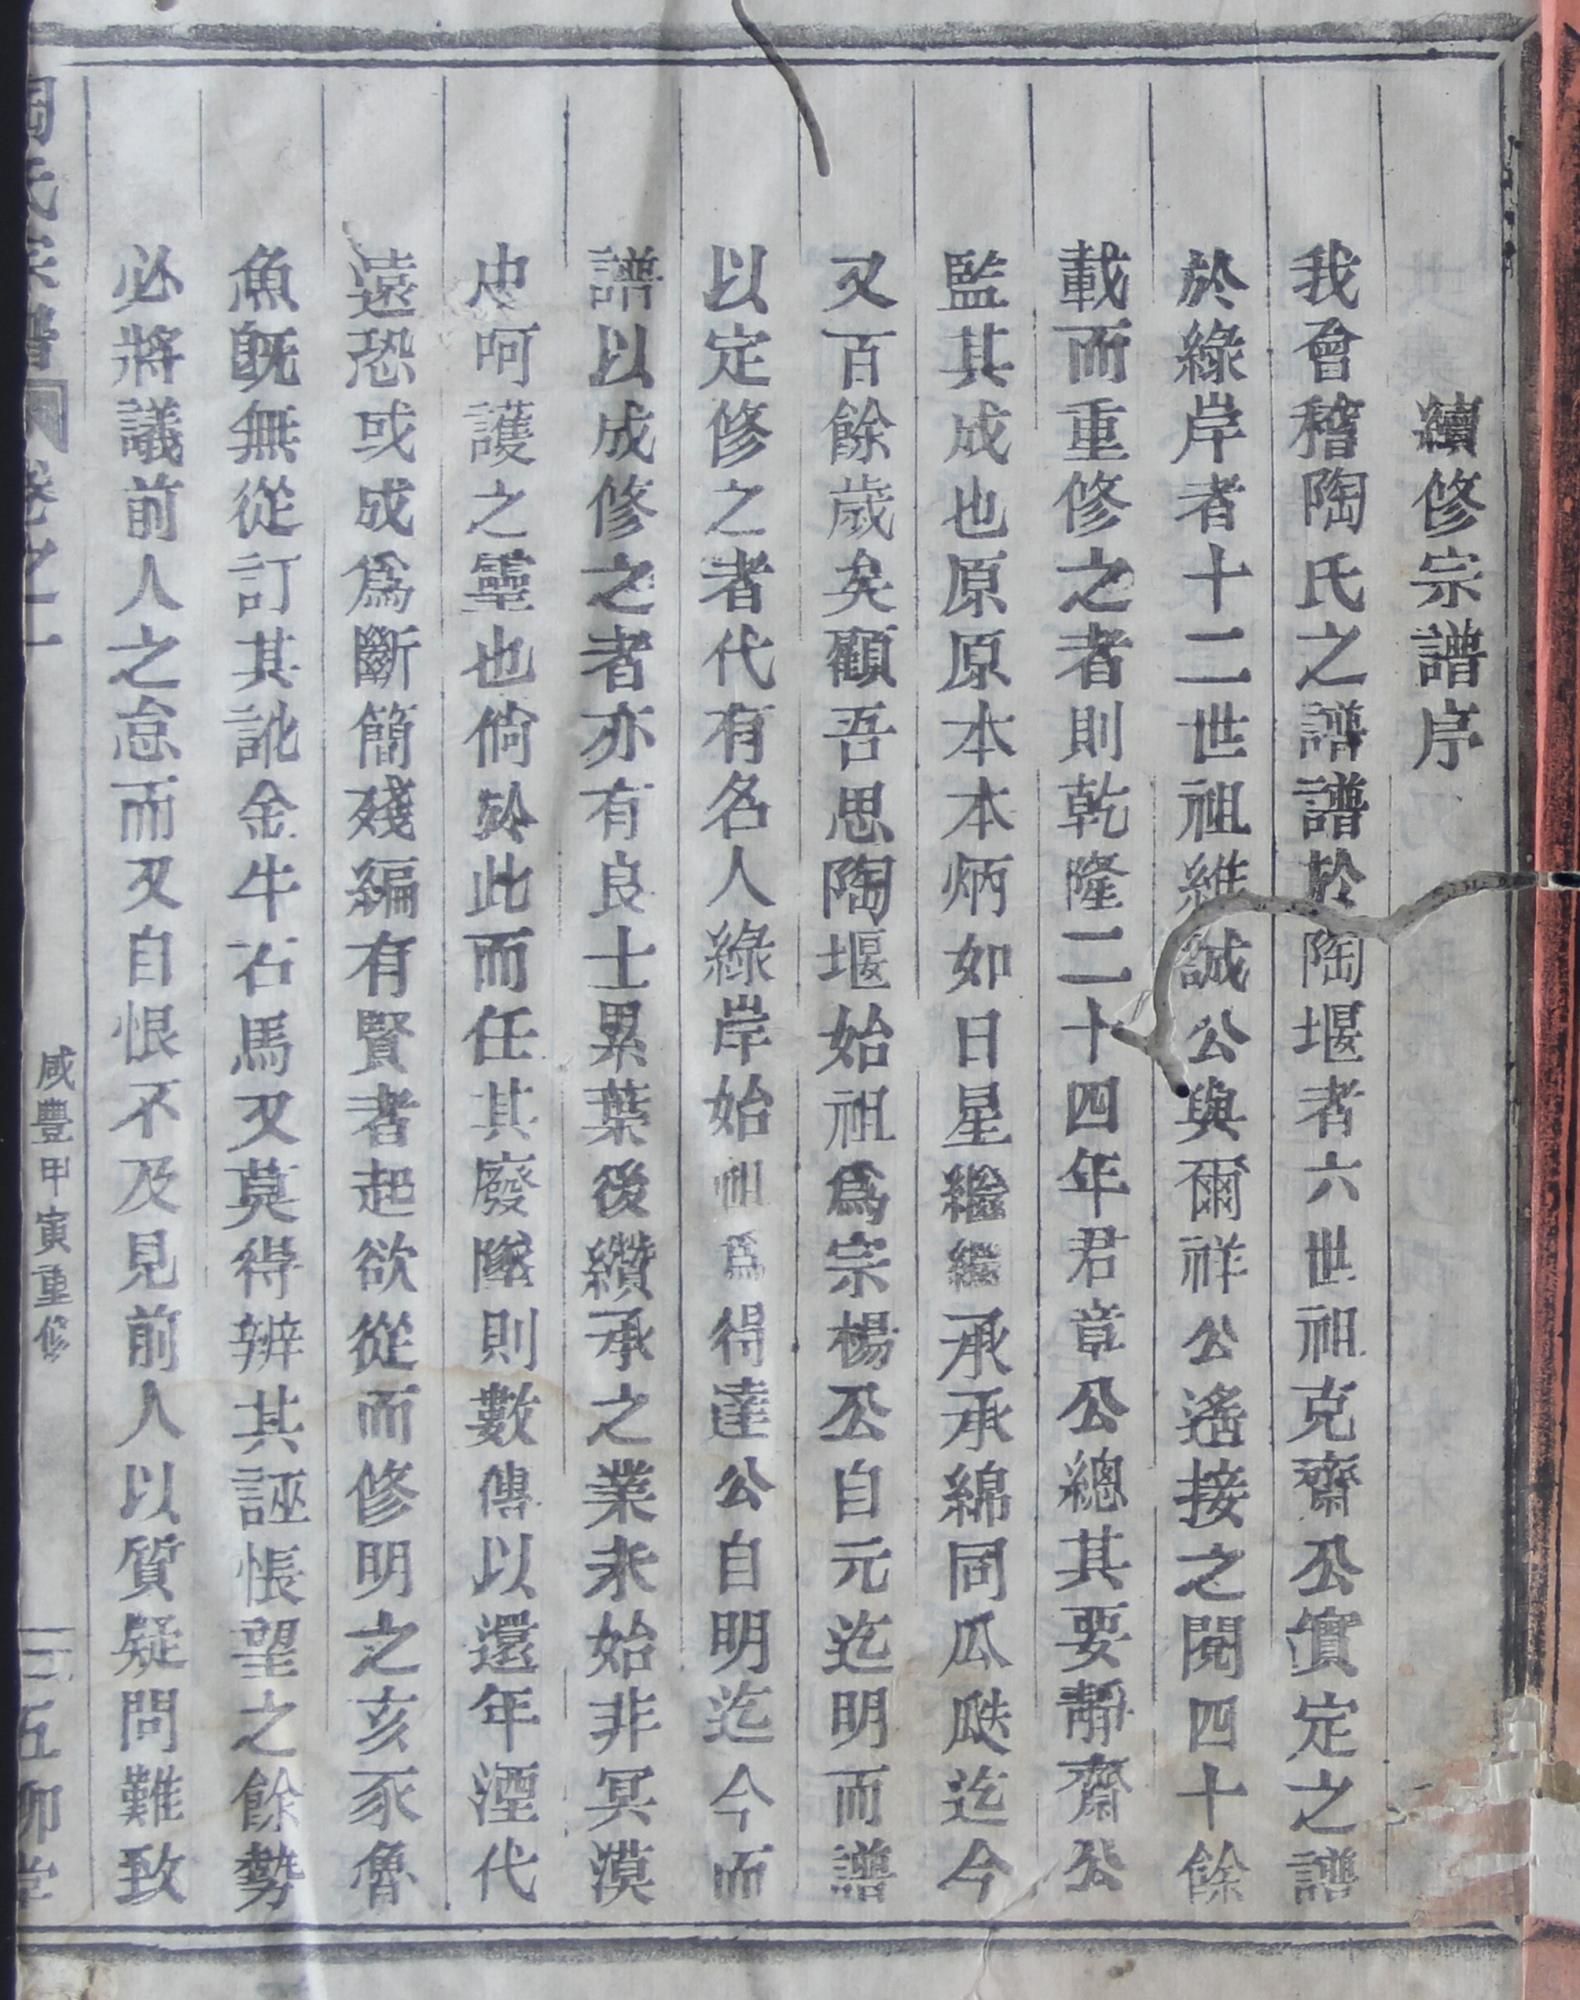 續修宗譜序
我會稽陶氏之譜譜於陶堰者六世祖克齋公實定之譜
於綠岸者十二世祖維誠公與爾祥公遙接之閱四十餘
載而重修之者則乾隆二十四年君章公總其要靜齋公
監其成也原原本本炳如日星繼繼承承綿同瓜瓞迄今
又百餘歲矣顧吾思陶堰始祖爲宗楊公自元迄明而譜
以定修之者代有名人綠岸始祖爲得達公自明迄今而
譜以成修之者亦有良士累葉後纘承之業未始非冥漠
中呵護之靈也倘於此而任其廢墜則數傳以還年湮代
遠恐或成爲斷簡殘編有賢者起欲從而修明之亥豕魯
魚旣無從訂其訛金牛石馬又莫得辨其誣悵望之餘勢
必將議前人之怠而又自恨不及見前人以質疑問難致
陶氏宗譜 卷之一 咸豐甲寅重修 二 五柳堂